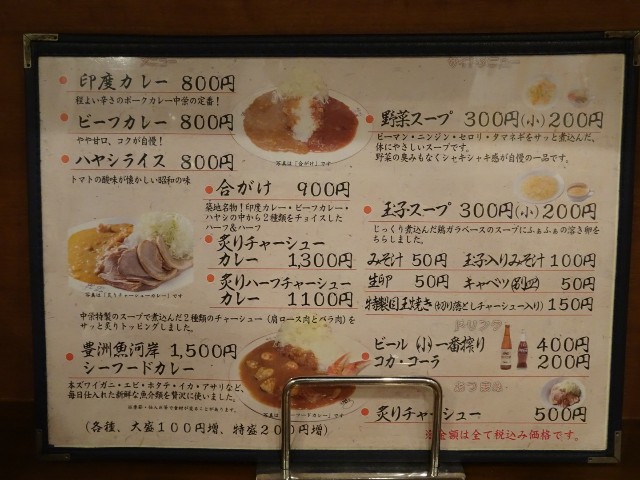 メニュー
印度カレー 800円
程よい辛さのポークカレー中栄の定番！
ビーフカレー 800円
やや甘口、コクが自慢！
ハヤシライス 800円
トマトの酸味が懐かしい昭和の味
写真は「合がけ」です
合がけ 900円
築地名物！印度カレー・ビーフカレー・
ハヤシの中から2種類をチョイスした
ハーフ&ハーフ
炙りチャーシュー
カレー 1,300円
炙りハーフチャーシュー
カレー 1100円
写真は「炙りチャーシューカレー」です
中栄特製のスープで煮込んだ2種類のチャーシュー（肩ロース肉とバラ肉）を
サッと炙りトッピングしました。
豊洲魚河岸 1,500円
シーフードカレー
本ズワイガニ・エビ・ホタテ・イカ・アサリなど、
毎日仕入れた新鮮な魚介類を贅沢に使いました。
写真は「シーフードカレー」です
(各種、大盛100円増、特盛200円増)
サイドメニュー
野菜スープ 300円(小)200円
ピーマン・ニンジン・セロリ・タマネギをサッと煮込んだ、
体にやさしいスープです。
野菜の臭みもなくシャキシャキ感が自慢の一品です。
玉子スープ 300円(小)200円
じっくり煮込んだ鶏ガラベースのスープにふぁふぁの溶き卵を
ちらしました。
みそ汁 50円 玉子入りみそ汁 100円
生卵 50円 キャベツ(別盛) 50円
特製目玉焼き(切り落としチャーシュー入り) 150円
ドリンク
ビール（小）一番搾り 400円
コカ・コーラ 200円
おつまみ
炙りチャーシュー 500円
※金額は全て税込み価格です。